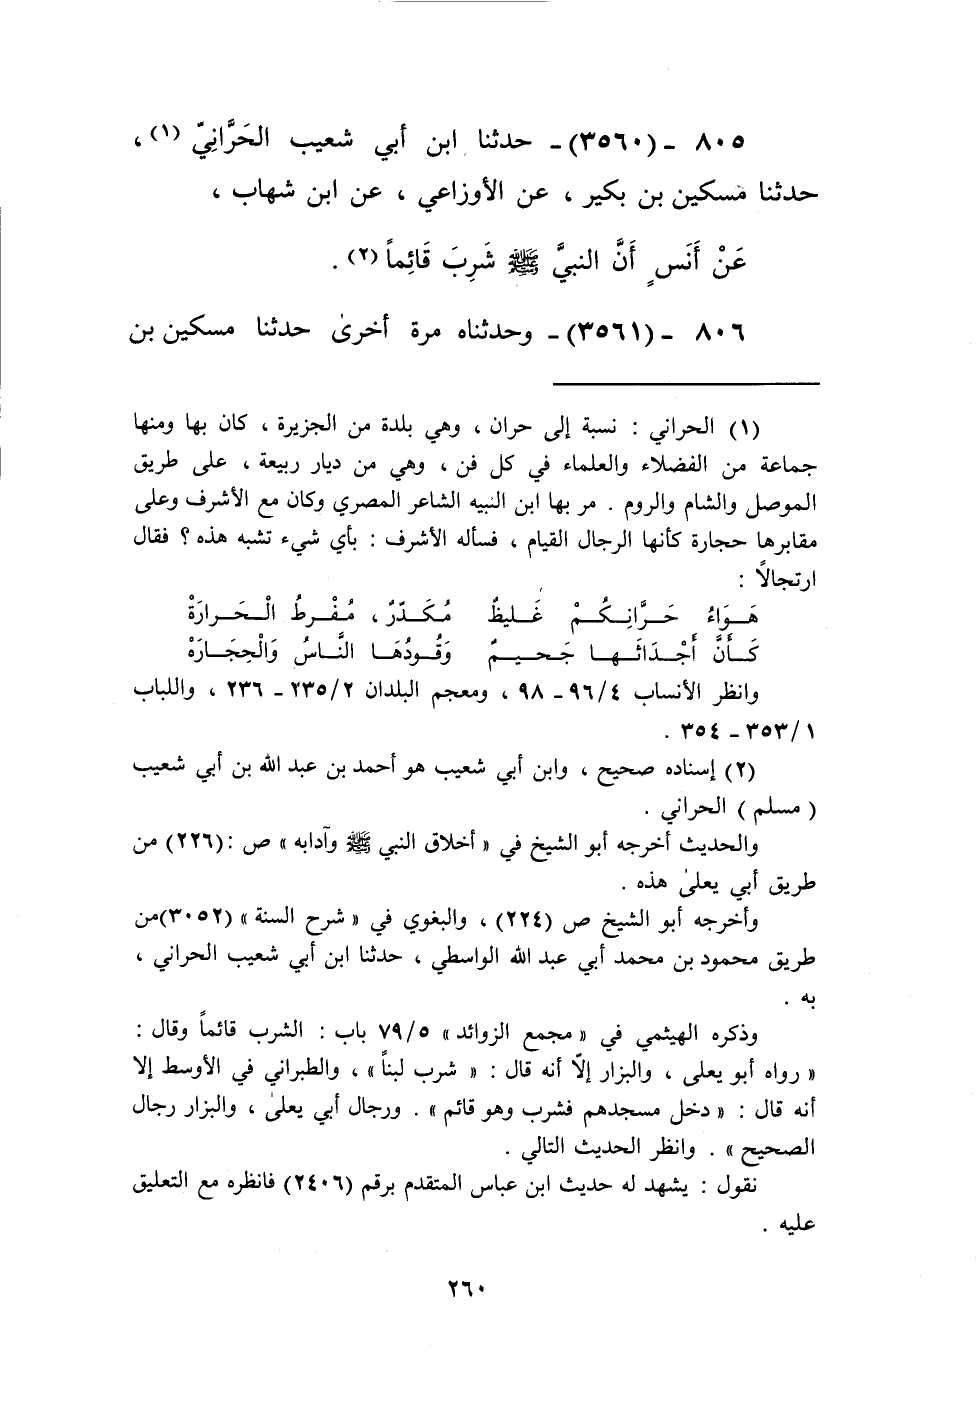 ٨٠٥ - (٣٥٦٠) - حدثنا ابن أبي شعيب الحَرَّانِيّ (١) ،
حدثنا مسكين بن بكير ، عن الأوزاعي ، عن ابن شهاب ،
عَنْ أَنَسٍ أَنَّ النبيَّ ﷺ شَرِبَ قَائِماً (٢) .
٨٠٦ - (٣٥٦١) - وحدثناه مرة أخرىٰ حدثنا مسكين بن
(١) الحراني : نسبة إلى حران ، وهي بلدة من الجزيرة ، كان بها ومنها
جماعة من الفضلاء والعلماء في كل فن ، وهي من ديار ربيعة ، على طريق
الموصل والشام والروم . مر بها ابن النبيه الشاعر المصري وكان مع الأشرف وعلى
مقابرها حجارة كأنها الرجال القيام ، فسأله الأشرف : بأي شيء تشبه هذه ؟ فقال
ارتجالاً :
هَـوَاءُ حَـرَّانِـكُـمْ غَـلِيظٌ مُكَـدَّرٌ ، مُفْـرِطُ الْـحَـرارَةْ
كَـأَنَّ أَجْـدَاثَـهـا جَـحـيـمٌ وَقُـودُهَـا النَّـاسُ وَالْحِجَـارَهْ
وانظر الأنساب ٩٦/٤ - ٩٨ ، ومعجم البلدان ٢٣٥/٢ - ٢٣٦ ، واللباب
٣٥٣/١ - ٣٥٤ .
(٢) إسناده صحيح ، وابن أبي شعيب هو أحمد بن عبد الله بن أبي شعيب
( مسلم ) الحراني .
والحديث أخرجه أبو الشيخ في « أخلاق النبي ﷺ وآدابه » ص :(٢٢٦) من
طريق أبي يعلىٰ هذه .
وأخرجه أبو الشيخ ص (٢٢٤) ، والبغوي في « شرح السنة » (٣٠٥٢)من
طريق محمود بن محمد أبي عبد الله الواسطي ، حدثنا ابن أبي شعيب الحراني ،
به .
وذكره الهيثمي في « مجمع الزوائد » ٧٩/٥ باب : الشرب قائماً وقال :
« رواه أبو يعلى ، والبزار إلّا أنه قال : « شرب لبناً » ، والطبراني في الأوسط إلا
أنه قال : « دخل مسجدهم فشرب وهو قائم » . ورجال أبي يعلىٰ ، والبزار رجال
الصحيح » . وانظر الحديث التالي .
نقول : يشهد له حديث ابن عباس المتقدم برقم (٢٤٠٦) فانظره مع التعليق
عليه .
٢٦٠